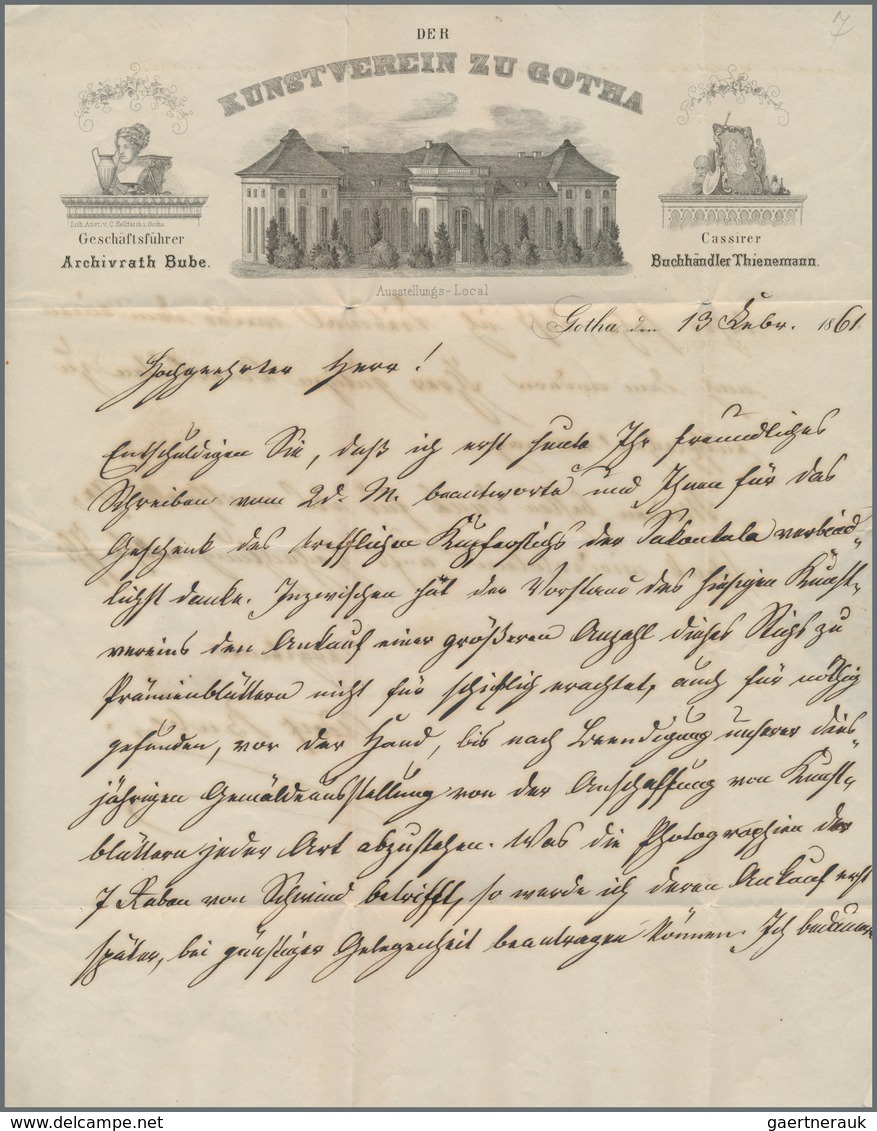 7
DER
KUNSTVEREIN ZU GOTHA
Lith. Anst. v. C. Hellfarth i. Gotha
Geschäftsführer
Archivrath Bube.
Cassirer
Buchhändler Thienemann.
Ausstellungs-Local
Gotha, den 13 Febr. 1861.
Hochgeehrter Herr!
Entschuldigen Sie, daß ich erst heute Ihr freundliches
Schreiben vom 2 d. M. beantworte und Ihnen für das
Geschenk des trefflichen Kupferstichs der Sakontala verbind-
lichst danke. Inzwischen hat der Vorstand des hiesigen Kunst-
vereins den Ankauf einer größeren Anzahl dieses Stichs zu
Prämienblättern nicht für schicklich erachtet, auch für nöthig
gefunden, vor der Hand, bis nach Beendigung unserer dies-
jährigen Gemäldeausstellung von der Anschaffung von Kunst-
blättern jeder Art abzustehen. Was die Photographien der
7 Raben von Schwind betrifft, so werde ich deren Ankauf erst
später, bei günstiger Gelegenheit beantragen können. Ich bedaure
www.delcampe.net
gaertnerauk